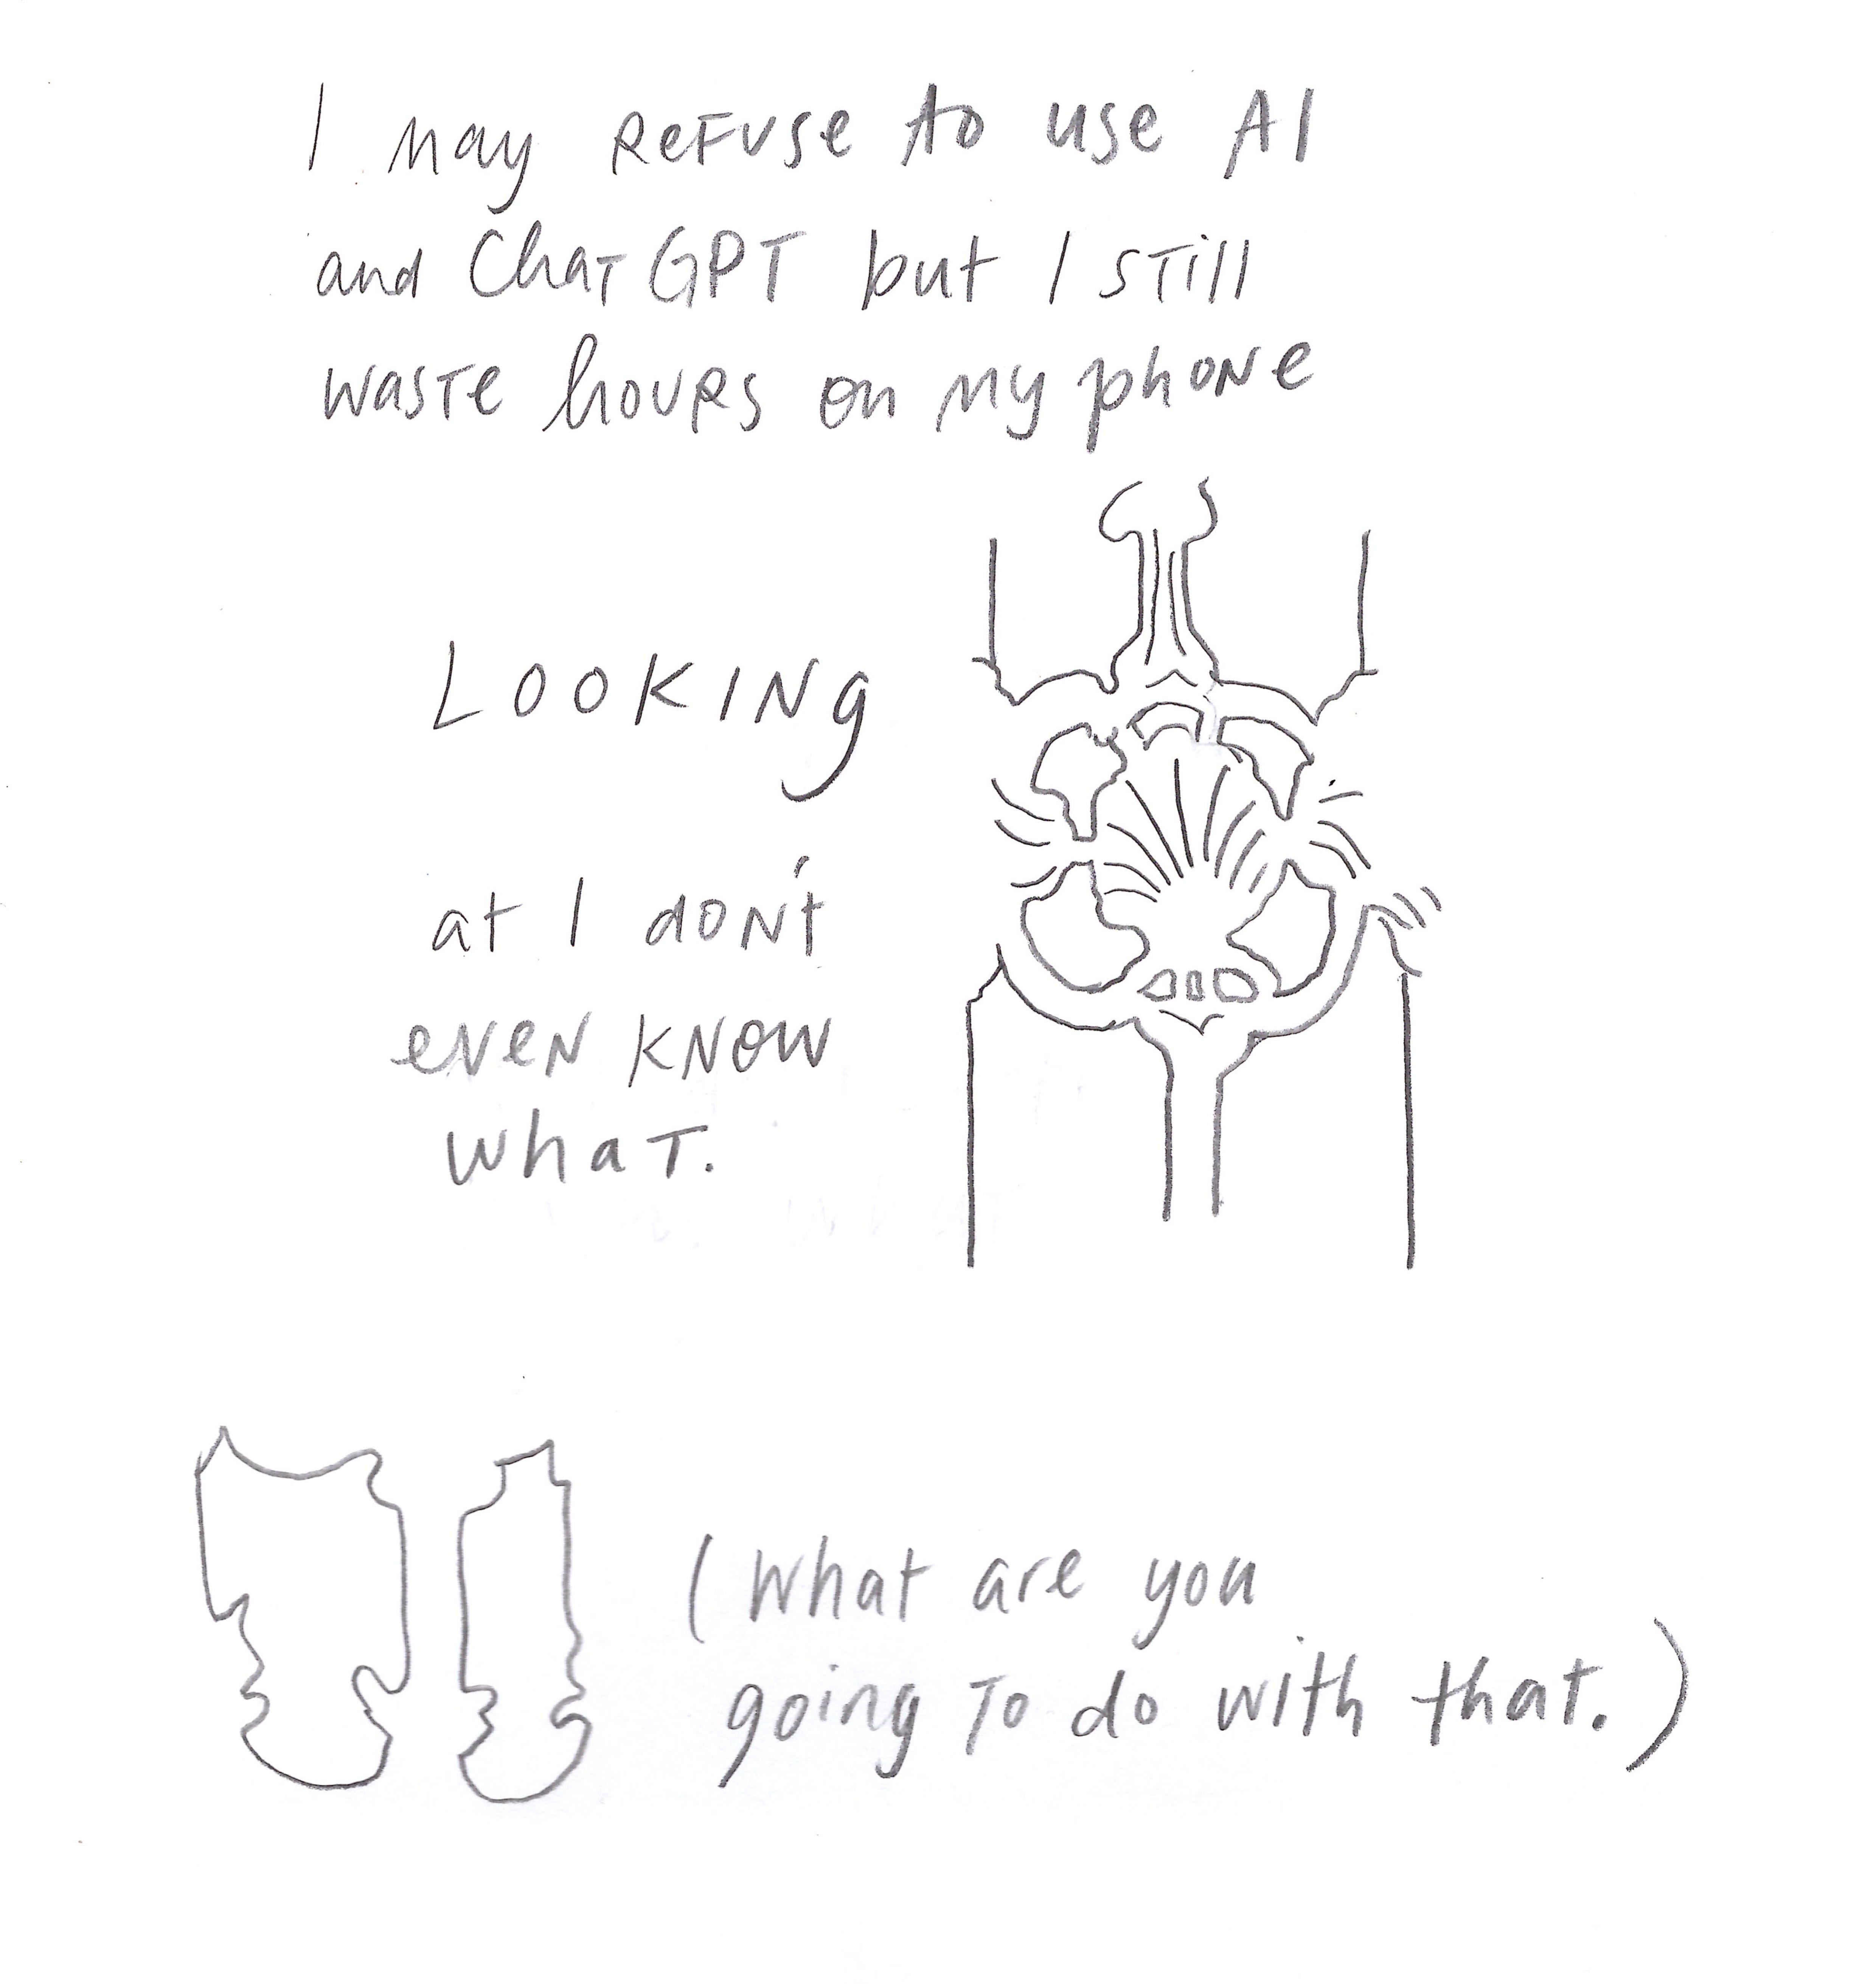 I may REFUSE to use AI
and ChatGPT but I still
waste hours on my phone
LOOKING
at I don't
even know
what.
(What are you
going to do with that.)